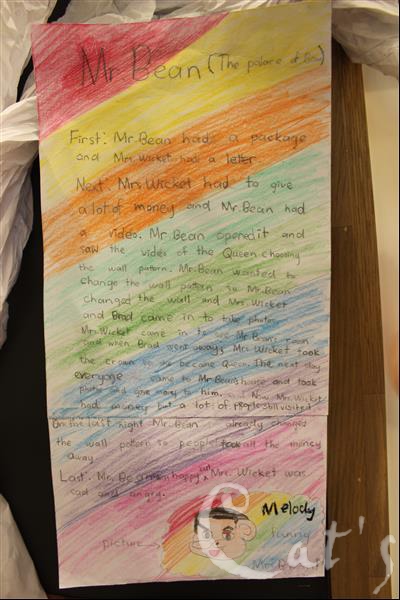 Mr Bean (The palace of Bean)
First: Mr.Bean had a package
and Mrs.Wicket had a letter.
Next: Mrs.Wicket had to give
a lot of money and Mr.Bean had
a video. Mr.Bean opened it and
saw the video of the Queen choosing
the wall pattern. Mr.Bean wanted to
change the wall pattern so Mr.Bean
changed the wall and Mrs.Wicket
and Brad came in to take photos.
Mrs.Wicket came in to see Mr.Bean's room
and when Brad went away, Mrs.Wicket took
the crown so she became Queen. The next day
everyone came to Mr.Bean's house and took
photos and give money to him. Now Mrs.Wicket
had money but a lot of people still visited.
On the last night Mr.Bean already changed
the wall pattern so people took all the money
away
Last: Mr. Bean happy but Mrs. Wicket was
sad and angry.
Melody
picture →
funny
Mr.Bean
Cat's